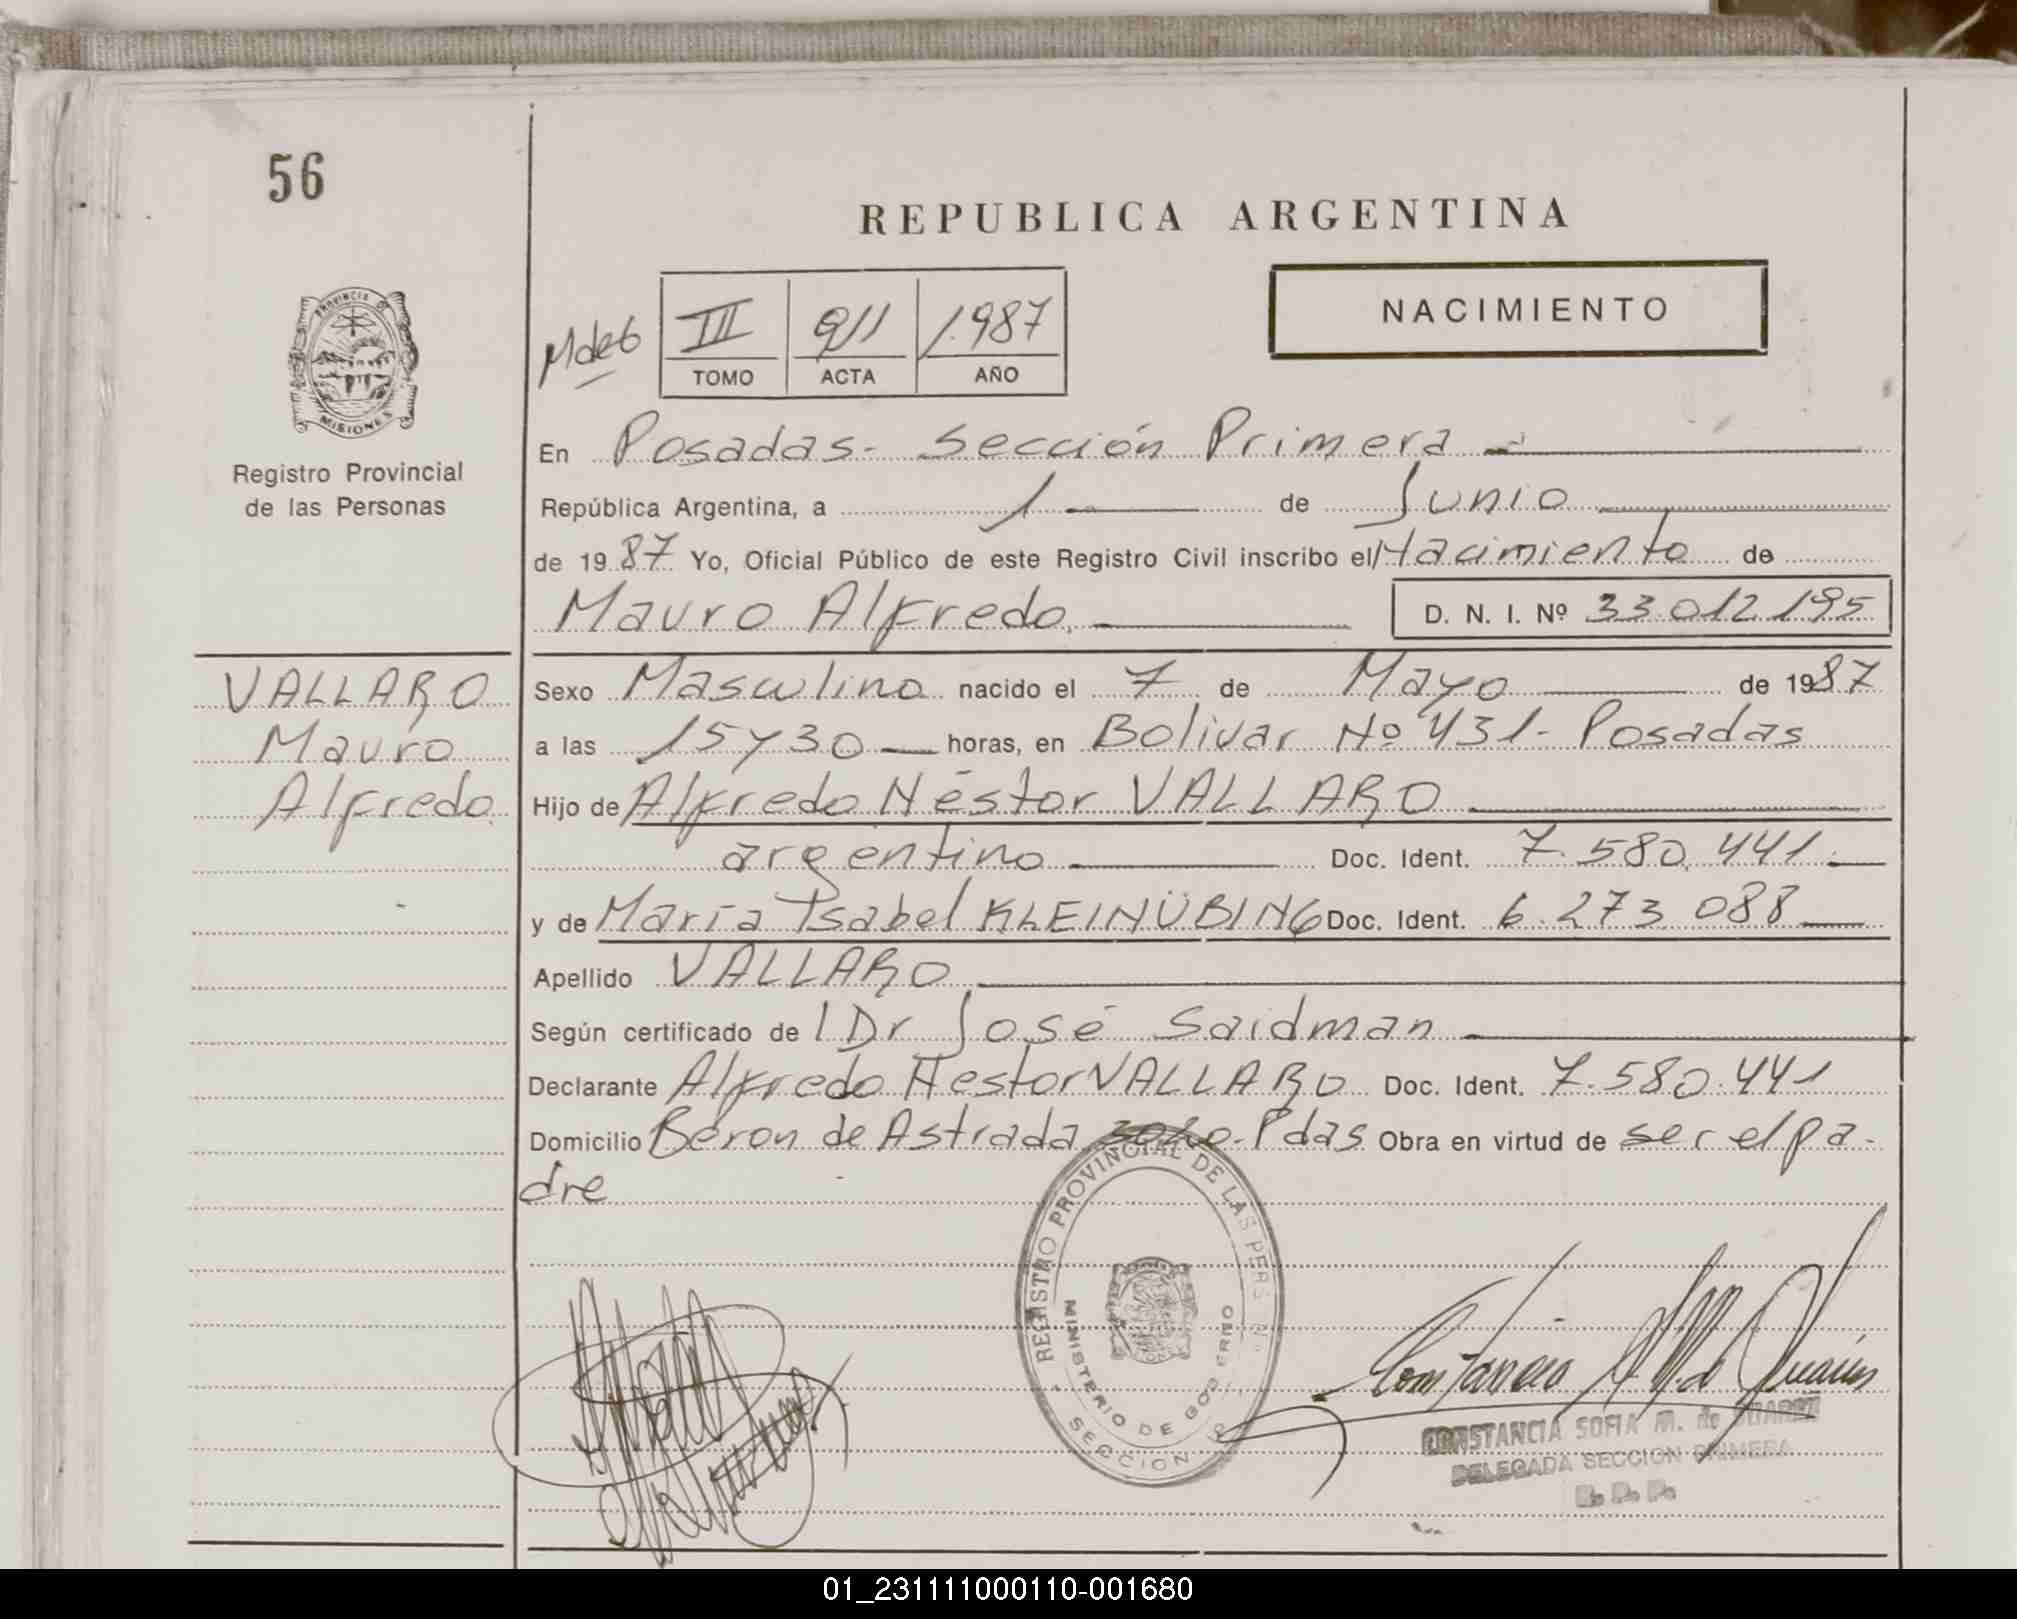 56
REPUBLICA ARGENTINA
PROVINCIA
MISIONES
Registro Provincial
de las Personas
III 911 1.987
TOMO ACTA AÑO
NACIMIENTO
En Posadas- Sección Primera
República Argentina, a 1 de Junio
de 1987 Yo, Oficial Público de este Registro Civil inscribo el Nacimiento de
Mauro Alfredo. D. N. I. Nº 33.012.195
VALLARO
Mauro
Alfredo
Sexo Masculino nacido el 7 de Mayo de 1987
a las 15 y 30 horas, en Bolivar Nº 431- Posadas
Hijo de Alfredo Néstor VALLARO
argentino Doc. Ident. 7.580.441.
y de María Isabel KLEINÜBING Doc. Ident. 6.273.088
Apellido VALLARO
Según certificado de l Dr José Saidman
Declarante Alfredo Nestor VALLARO Doc. Ident. 7.580.441
Domicilio Beron de Astrada Pdas Obra en virtud de ser el pa-
dre
REGISTRO PROVINCIAL DE LAS PERS
MINISTERIO DE GOBIERNO
SECCION
CONSTANCIA SOFIA M. de SUAREZ
DELEGADA SECCION PRIMERA
R. P. P.
01_231111000110-001680